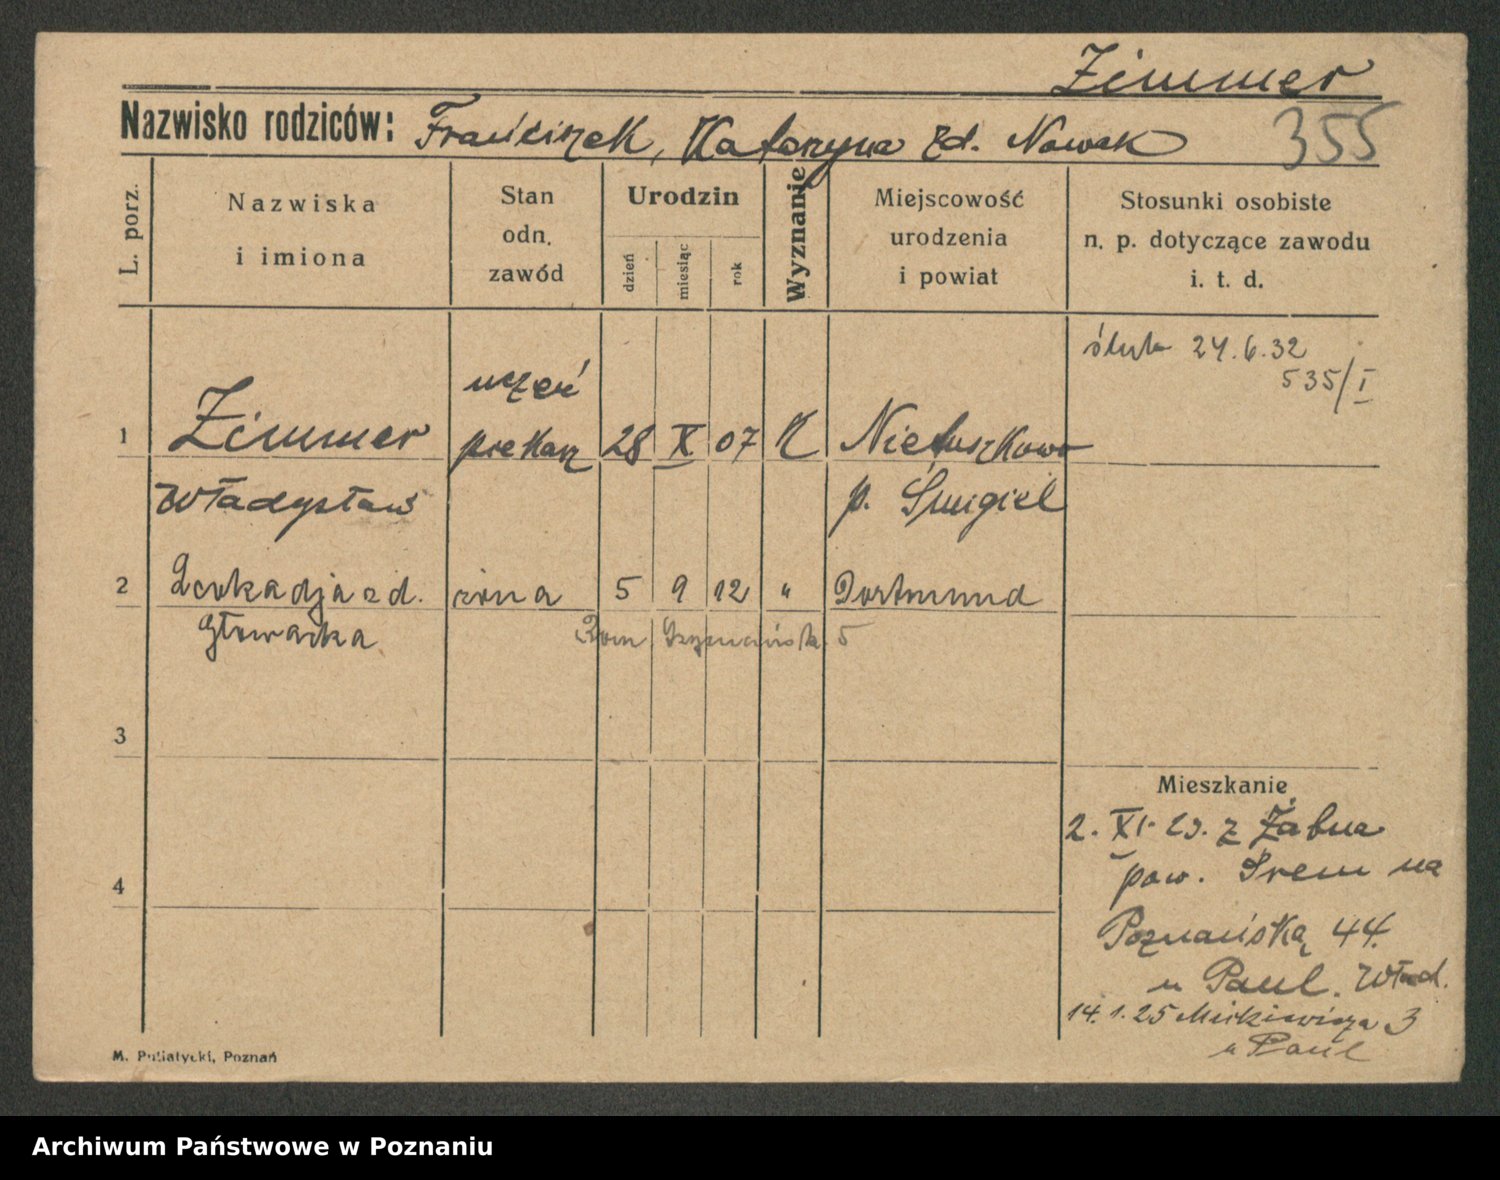 Zimmer
Nazwisko rodziców: Franciszek, Katarzyna zd. Nowak 355
L. porz. Nazwiska i imiona Stan odn. zawód Urodzin dzień miesiąc rok Wyznanie Miejscowość urodzenia i powiat Stosunki osobiste n. p. dotyczące zawodu i. t. d.
ślub 24.6.32
535/I
uczeń
1 Zimmer piekarz 28 X 07 K Nietuszkowo
Władysław p. Śmigiel
2 Leokadja zd. żona 5 9 12 " Dortmund
Głowacka 5
3
Mieszkanie
2. XI. 23. z Żabna
4 pow. Śrem na
Poznańską 44.
u Paul. Wład.
14. 1. 25 Mickiewicza 3
u Paul
M. Putiatycki, Poznań
Archiwum Państwowe w Poznaniu